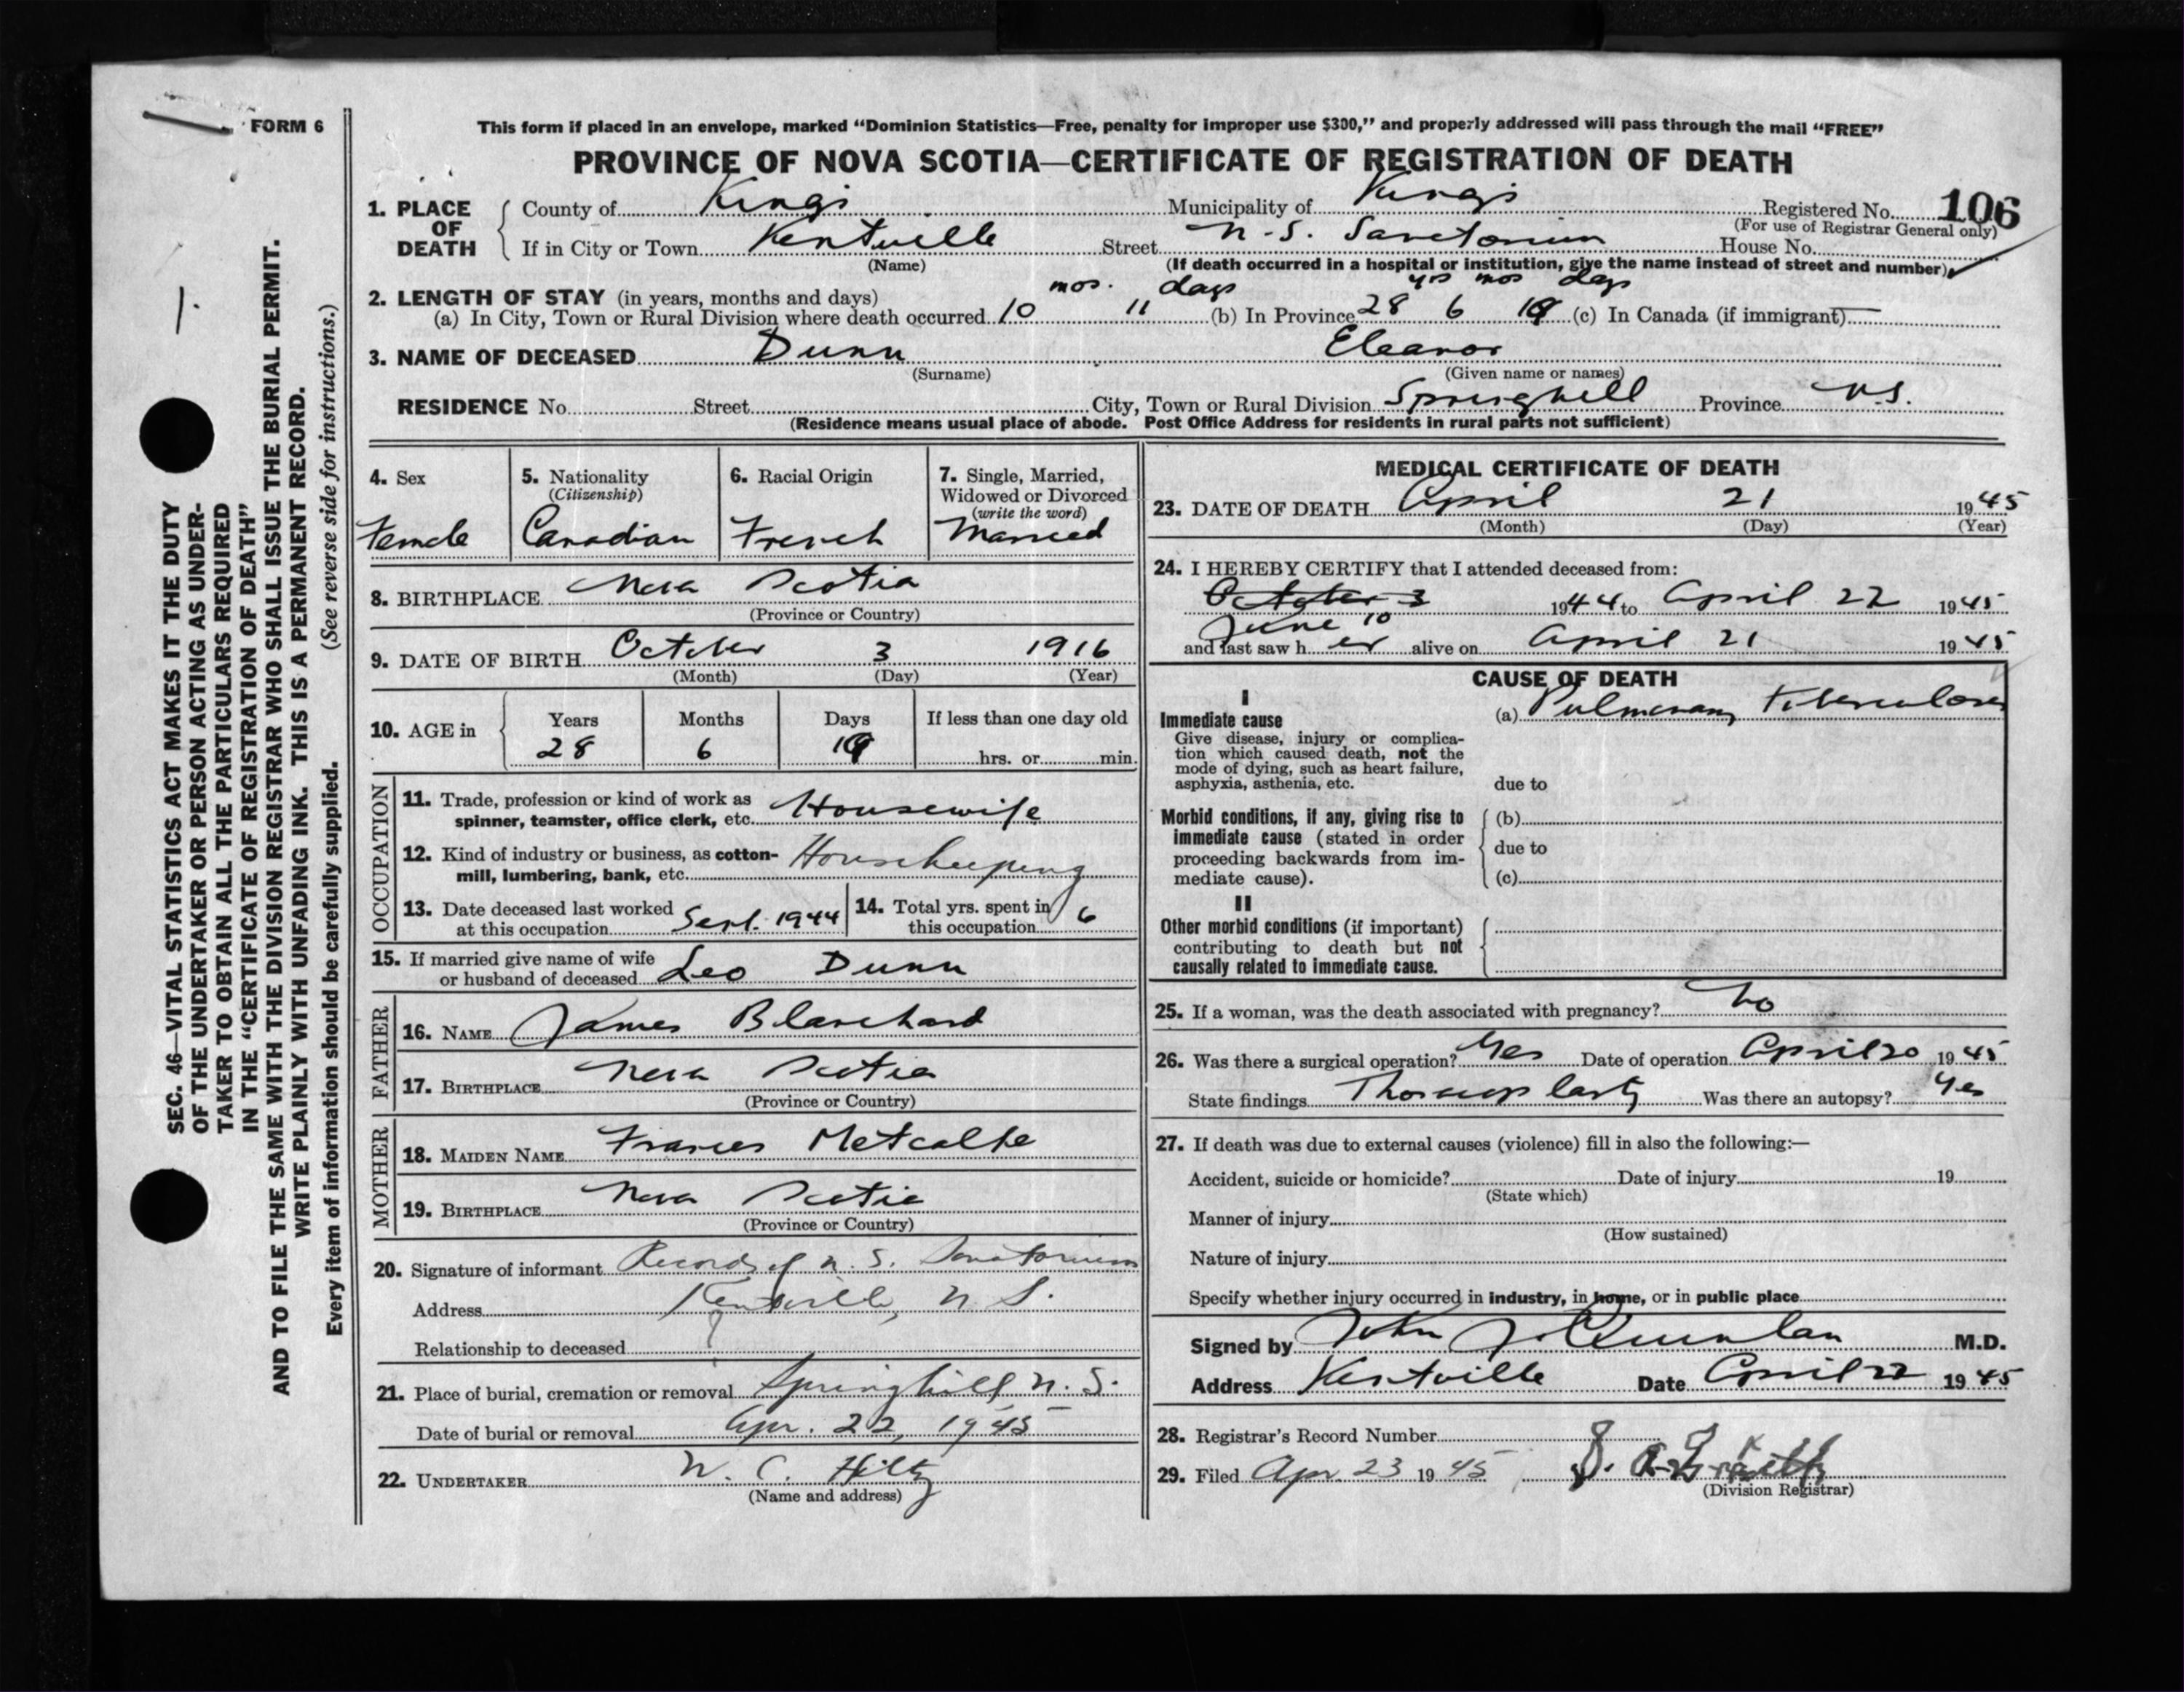 FORM 6
This form if placed in an envelope, marked “Dominion Statistics—Free, penalty for improper use $300,” and properly addressed will pass through the mail “FREE”
PROVINCE OF NOVA SCOTIA—CERTIFICATE OF REGISTRATION OF DEATH
1. PLACE OF DEATH County of Kings Municipality of Kings Registered No. 106
(For use of Registrar General only)
If in City or Town Kentville Street N.S. Sanatorium House No.
(Name) (If death occurred in a hospital or institution, give the name instead of street and number)
2. LENGTH OF STAY (in years, months and days) mos. days yrs mos days
(a) In City, Town or Rural Division where death occurred 10 11 (b) In Province 28 6 19 (c) In Canada (if immigrant) —
3. NAME OF DECEASED Dunn Eleanor
(Surname) (Given name or names)
RESIDENCE No. Street City, Town or Rural Division Springhill Province N.S.
(Residence means usual place of abode. Post Office Address for residents in rural parts not sufficient)
4. Sex
Female
5. Nationality
(Citizenship)
Canadian
6. Racial Origin
French
7. Single, Married,
Widowed or Divorced
(write the word)
Married
8. BIRTHPLACE Nova Scotia
(Province or Country)
9. DATE OF BIRTH October 3 1916
(Month) (Day) (Year)
10. AGE in Years Months Days If less than one day old
28 6 19 hrs. or min.
OCCUPATION
11. Trade, profession or kind of work as
spinner, teamster, office clerk, etc. Housewife
12. Kind of industry or business, as cotton-
mill, lumbering, bank, etc. Housekeeping
13. Date deceased last worked
at this occupation Sept. 1944
14. Total yrs. spent in
this occupation 6
15. If married give name of wife
or husband of deceased Leo Dunn
FATHER
16. NAME James Blanchard
17. BIRTHPLACE Nova Scotia
(Province or Country)
MOTHER
18. MAIDEN NAME Frances Metcalfe
19. BIRTHPLACE Nova Scotia
(Province or Country)
20. Signature of informant Records of N. S. Sanatorium
Address Kentville, N. S.
Relationship to deceased
21. Place of burial, cremation or removal Springhill N. S.
Date of burial or removal Apr. 22, 1945
22. UNDERTAKER W. C. Hiltz
(Name and address)
MEDICAL CERTIFICATE OF DEATH
23. DATE OF DEATH April 21 1945
(Month) (Day) (Year)
24. I HEREBY CERTIFY that I attended deceased from:
October 3 1944 to April 22 1945
June 10
and last saw h er alive on April 21 1945
CAUSE OF DEATH
I
Immediate cause (a) Pulmonary Tuberculosis
Give disease, injury or complica-
tion which caused death, not the
mode of dying, such as heart failure,
asphyxia, asthenia, etc. due to
Morbid conditions, if any, giving rise to (b)
immediate cause (stated in order
proceeding backwards from im- due to
mediate cause). (c)
II
Other morbid conditions (if important)
contributing to death but not
causally related to immediate cause.
25. If a woman, was the death associated with pregnancy? No
26. Was there a surgical operation? Yes Date of operation April 20 1945
State findings Thoracoplasty Was there an autopsy? Yes
27. If death was due to external causes (violence) fill in also the following:—
Accident, suicide or homicide? Date of injury 19
(State which)
Manner of injury
(How sustained)
Nature of injury
Specify whether injury occurred in industry, in home, or in public place
Signed by John J. Quinlan M.D.
Address Kentville Date April 22 1945
28. Registrar's Record Number
29. Filed Apr. 23 1945
(Division Registrar)
SEC. 46—VITAL STATISTICS ACT MAKES IT THE DUTY
OF THE UNDERTAKER OR PERSON ACTING AS UNDER-
TAKER TO OBTAIN ALL THE PARTICULARS REQUIRED
IN THE “CERTIFICATE OF REGISTRATION OF DEATH”
AND TO FILE THE SAME WITH THE DIVISION REGISTRAR WHO SHALL ISSUE THE BURIAL PERMIT.
WRITE PLAINLY WITH UNFADING INK. THIS IS A PERMANENT RECORD.
Every item of information should be carefully supplied. (See reverse side for instructions.)